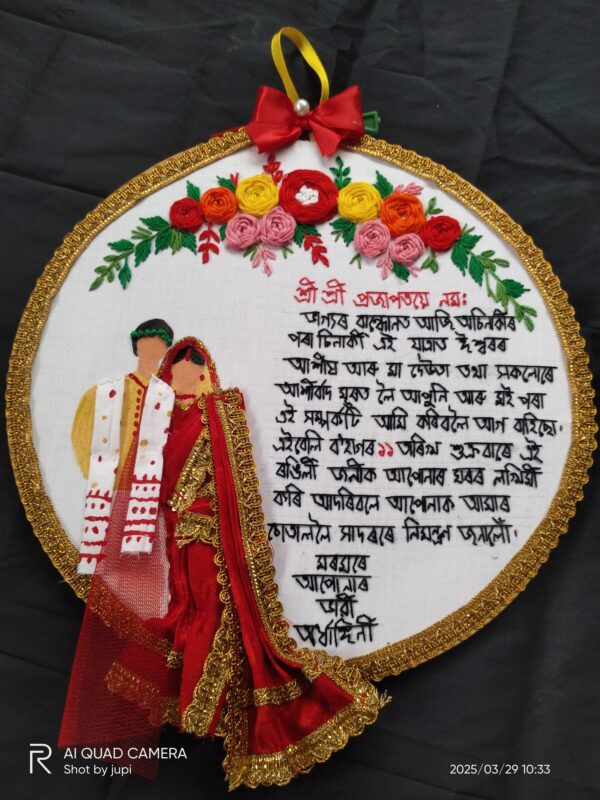 শ্ৰী শ্ৰী প্ৰজাপতয়ে নমঃ
ভাগ্যৰ বান্ধোনত আজি অচিনাকীৰ
পৰা চিনাকী এই যাত্ৰাত ঈশ্বৰৰ
আশীষ আৰু মা দেউতা তথা সকলোৰে
আশীৰ্বাদ মূৰত লৈ আপুনি আৰু মই পৰা
এই সম্পৰ্কটি আমি কৰিবলৈ আগ বাঢ়িছো।
এইবেলি ব'হাগৰ ১১ তাৰিখ শুক্ৰবাৰে এই
ৰঙিলী জনীক আপোনাৰ ঘৰৰ লখিমী
কৰি আদৰিবলে আপোনাক আমাৰ
চোতাললৈ সাদৰৰে নিমন্ত্ৰণ জনালোঁ।
মৰমেৰে
আপোনাৰ
ভাৱী
অৰ্ধাঙ্গিনী
AI QUAD CAMERA
Shot by jupi
2025/03/29 10:33